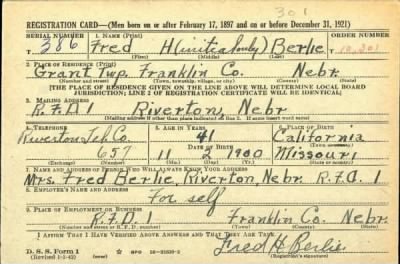 301
REGISTRATION CARD—(Men born on or after February 17, 1897 and on or before December 31, 1921)
SERIAL NUMBER 1. NAME (Print) ORDER NUMBER
T 386 Fred H(initial only) Berlie 10,201
(First) (Middle) (Last)
2. PLACE OF RESIDENCE (Print)
Grant Twp. Franklin Co. Nebr.
(Number and street) (Town, township, village, or city) (County) (State)
[THE PLACE OF RESIDENCE GIVEN ON THE LINE ABOVE WILL DETERMINE LOCAL BOARD
JURISDICTION; LINE 2 OF REGISTRATION CERTIFICATE WILL BE IDENTICAL]
3. MAILING ADDRESS
R.F.D 1 Riverton, Nebr
[Mailing address if other than place indicated on line 2. If same insert word same]
4. TELEPHONE 5. AGE IN YEARS 6. PLACE OF BIRTH
Riverton Teh Co. 41 California
DATE OF BIRTH (Town or county)
657 11 2 1900 Missouri
(Exchange) (Number) (Mo.) (Day) (Yr.) (State or country)
7. NAME AND ADDRESS OF PERSON WHO WILL ALWAYS KNOW YOUR ADDRESS
Mrs. Fred Berlie, Riverton, Nebr. R.F.D. 1
8. EMPLOYER'S NAME AND ADDRESS
For self
9. PLACE OF EMPLOYMENT OR BUSINESS
R.F.D. 1 Franklin Co. Nebr.
(Number and street or R. F. D. number) (Town) (County) (State)
I AFFIRM THAT I HAVE VERIFIED ABOVE ANSWERS AND THAT THEY ARE TRUE.
D. S. S. Form 1 GPO Fred H Berlie
(Revised 1-1-42) (over) (Registrant's signature)